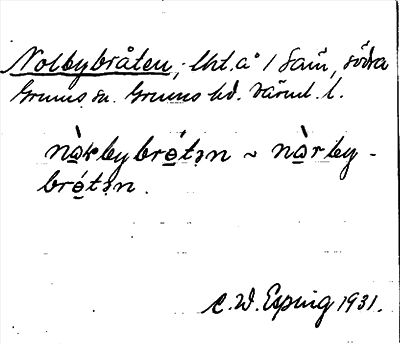 Nolbybråten, lht. å 1 Sam, södra
Grums sn. Grums hd. Värml. l.
nàrbybrétɘn ~ nàrby-
brétɘn.
C. W. Esping 1931.